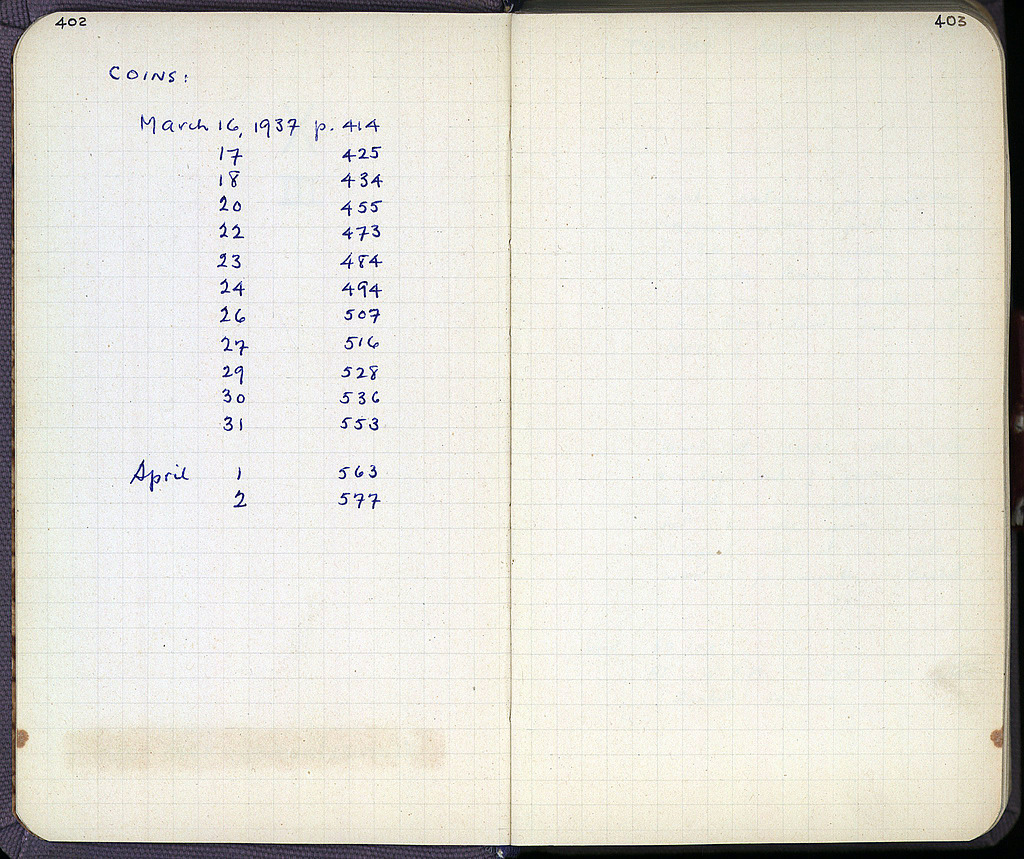 402
COINS:
March 16, 1937 p. 414
17 425
18 434
20 455
22 473
23 484
24 494
26 507
27 516
29 528
30 536
31 553
April 1 563
2 577
403